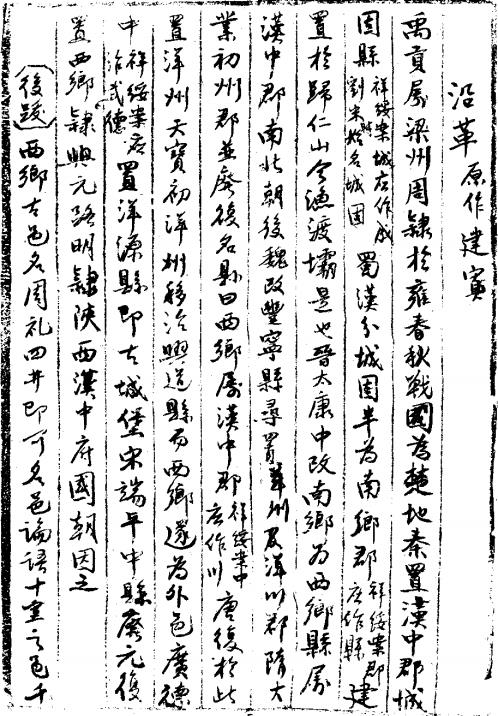 沿革 原作建寘
禹貢屬梁州周隸於雍春秋戰國為楚地秦置漢中郡城
固縣 祥綏案城应作成 劉宋始名城固 蜀漢分城固半為南鄉郡 祥綏案郡应作縣 建
置於歸仁山今漁渡壩是也晉太康中改南鄉為西鄉縣屬
漢中郡南北朝後魏改豐寧縣尋置洋州及洋川郡隋大
業初州郡並廢後名縣曰西鄉屬漢中郡 祥綏案中应作川 唐復於此
置洋州天寶初洋州移治興道縣而西鄉遂為外邑廣德
中 祥綏案应治武德 置洋源縣即古城堡宋端平中縣廢元復
置西鄉隸興元路明隸陝西漢中府國朝因之
(後跋)西鄉古邑名周礼四井即可名邑論語十室之邑千